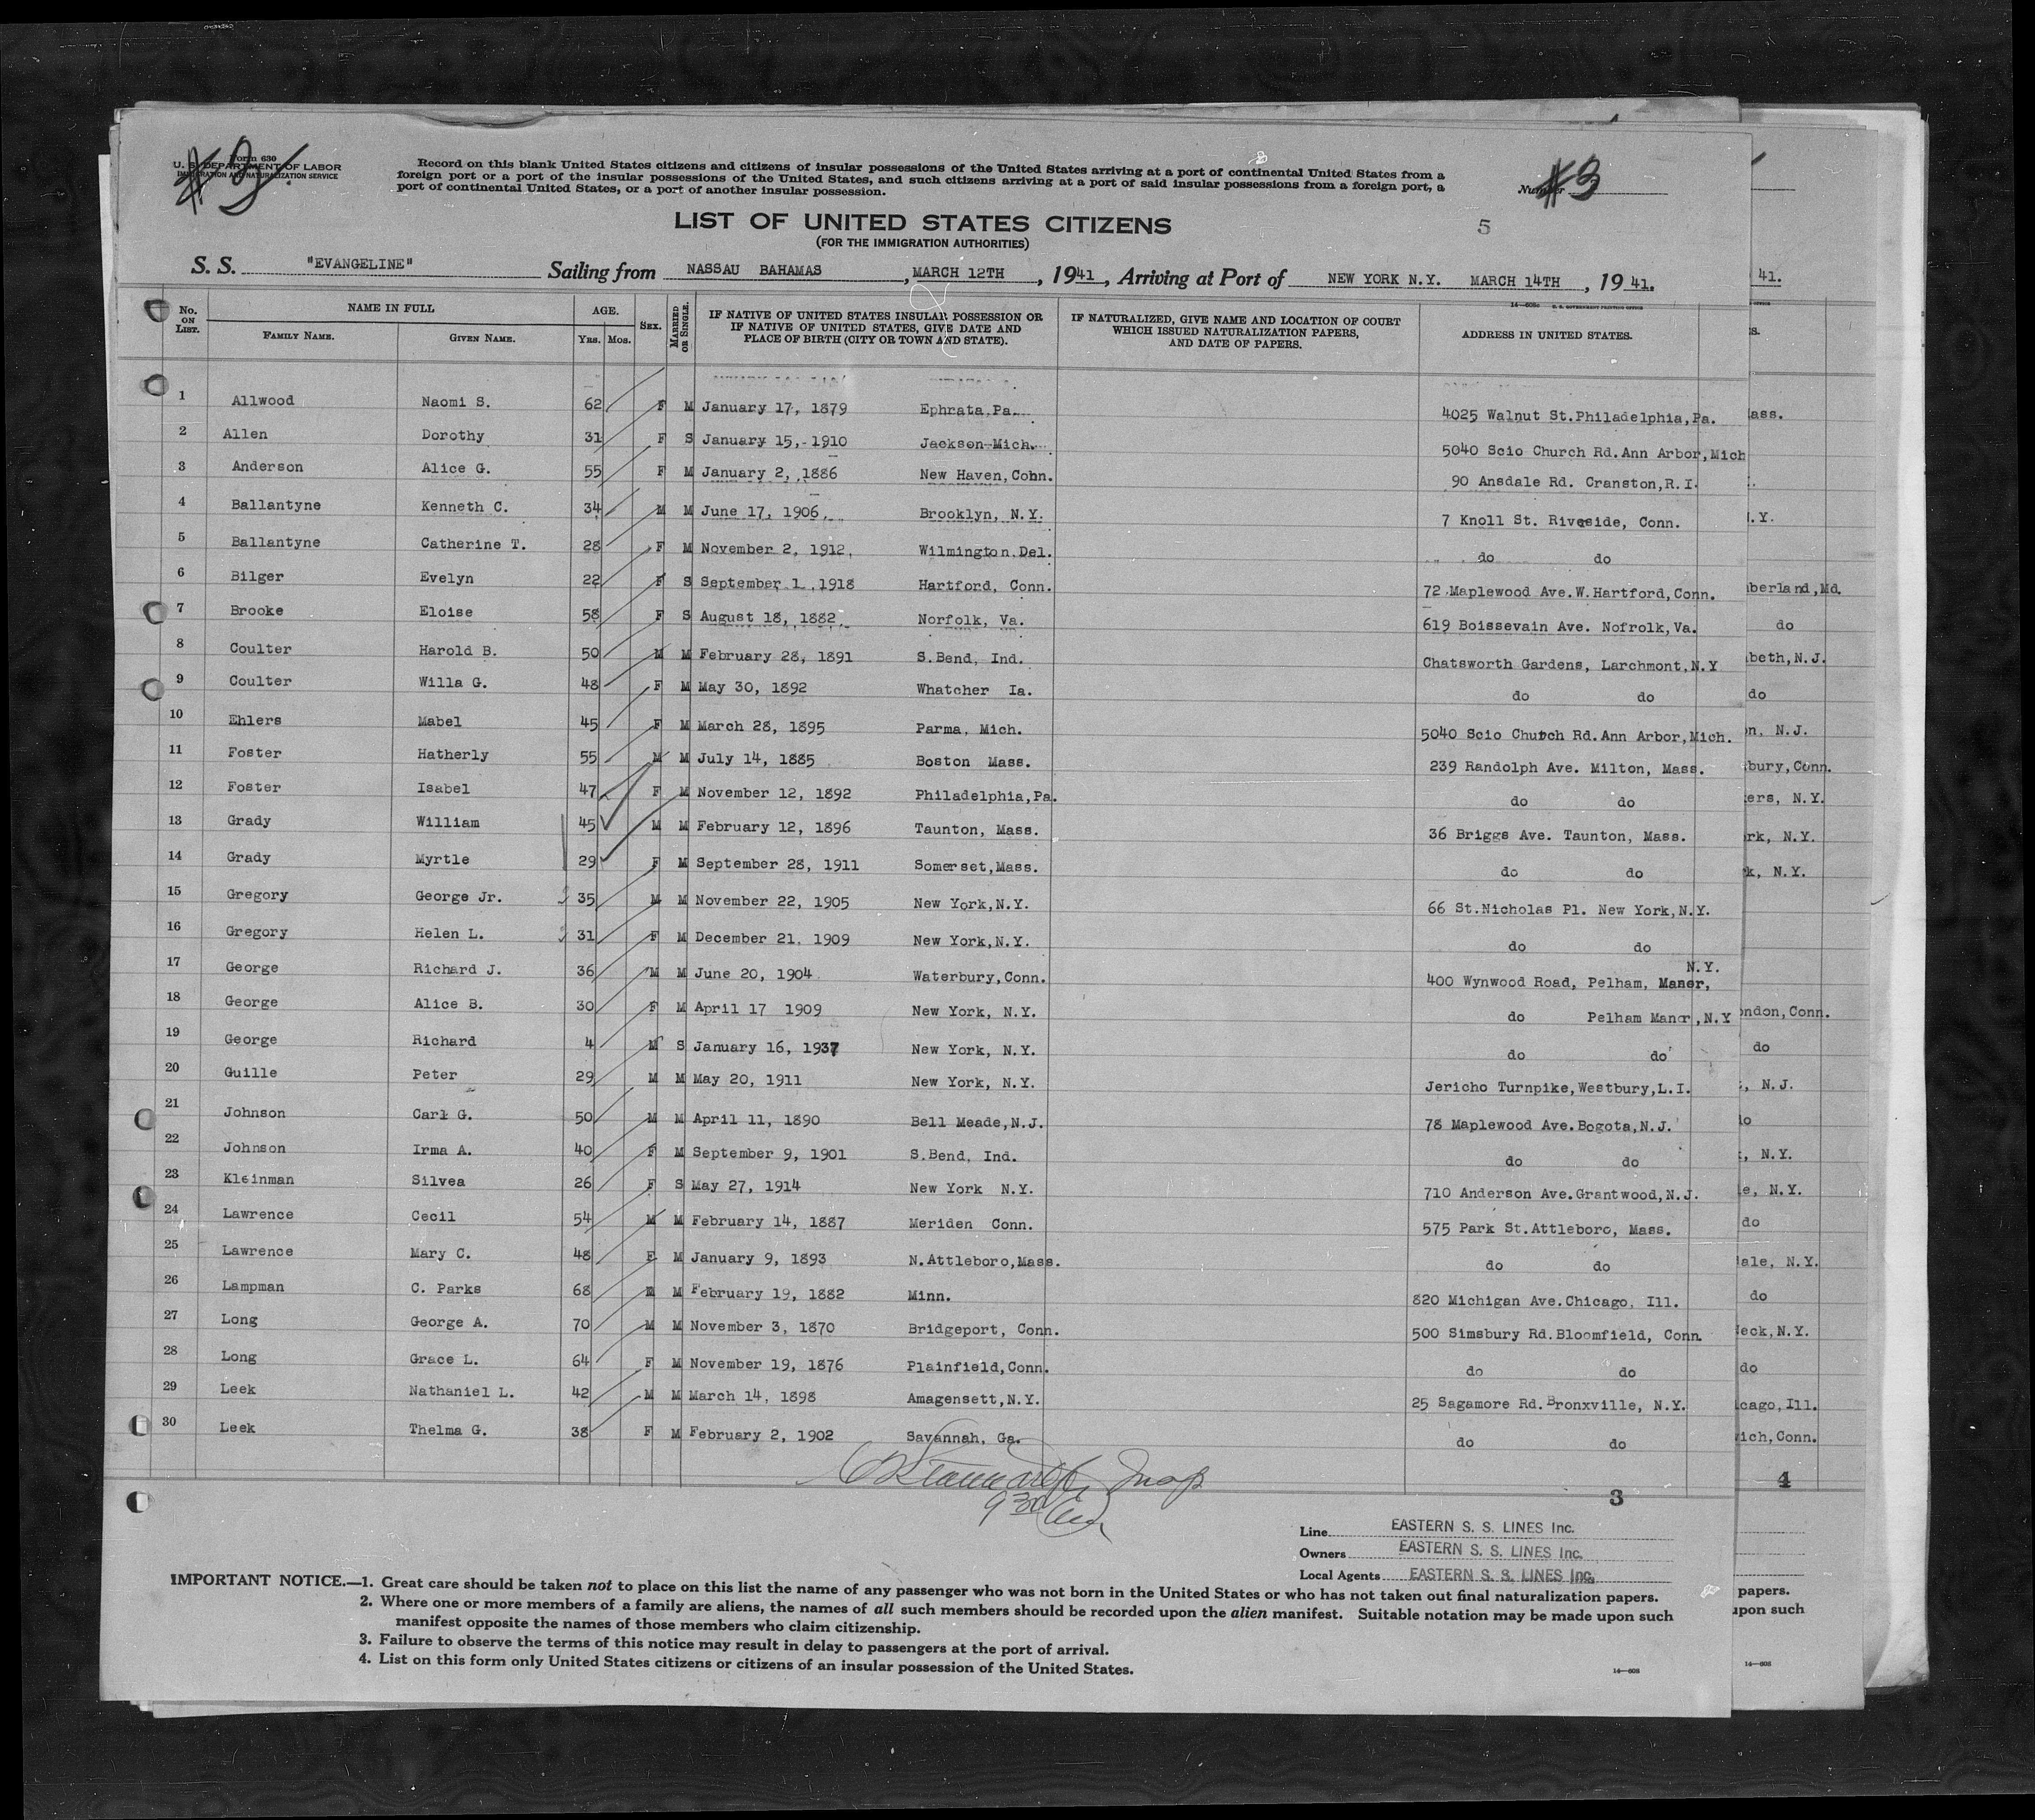 #3
Form 630
U. S. DEPARTMENT OF LABOR
IMMIGRATION AND NATURALIZATION SERVICE
Record on this blank United States citizens and citizens of insular possessions of the United States arriving at a port of continental United States from a
foreign port or a port of the insular possessions of the United States, and such citizens arriving at a port of said insular possessions from a foreign port, a
port of continental United States, or a port of another insular possession.
Number #3
LIST OF UNITED STATES CITIZENS
(FOR THE IMMIGRATION AUTHORITIES)
5
S. S. "EVANGELINE" Sailing from NASSAU BAHAMAS, MARCH 12TH, 1941, Arriving at Port of NEW YORK N.Y. MARCH 14TH, 19 41.
41.
No. ON LIST. NAME IN FULL FAMILY NAME. GIVEN NAME. AGE. Yrs. Mos. SEX. MARRIED OR SINGLE. IF NATIVE OF UNITED STATES INSULAR POSSESSION OR IF NATIVE OF UNITED STATES, GIVE DATE AND PLACE OF BIRTH (CITY OR TOWN AND STATE). IF NATURALIZED, GIVE NAME AND LOCATION OF COURT WHICH ISSUED NATURALIZATION PAPERS, AND DATE OF PAPERS. ADDRESS IN UNITED STATES.
1 Allwood Naomi S. 62 F M January 17, 1879 Ephrata,Pa. 4025 Walnut St.Philadelphia,Pa.
2 Allen Dorothy 31 F S January 15, 1910 Jackson Mich. 5040 Scio Church Rd.Ann Arbor,Mich
3 Anderson Alice G. 55 F M January 2, 1886 New Haven,Conn. 90 Ansdale Rd. Cranston,R.I.
4 Ballantyne Kenneth C. 34 M M June 17, 1906, Brooklyn, N.Y. 7 Knoll St. Riverside, Conn.
5 Ballantyne Catherine T. 28 F M November 2, 1912, Wilmington.Del. do do
6 Bilger Evelyn 22 F S September 1 ,1918 Hartford, Conn. 72 Maplewood Ave.W.Hartford,Conn.
7 Brooke Eloise 58 F S August 18, 1882, Norfolk, Va. 619 Boissevain Ave. Nofrolk,Va.
8 Coulter Harold B. 50 M M February 28, 1891 S.Bend, Ind. Chatsworth Gardens, Larchmont,N.Y
9 Coulter Willa G. 48 F M May 30, 1892 Whatcher Ia. do do
10 Ehlers Mabel 45 F M March 28, 1895 Parma, Mich. 5040 Scio Church Rd.Ann Arbor,Mich.
11 Foster Hatherly 55 M M July 14, 1885 Boston Mass. 239 Randolph Ave. Milton, Mass.
12 Foster Isabel 47 F M November 12, 1892 Philadelphia,Pa. do do
13 Grady William 45 M M February 12, 1896 Taunton, Mass. 36 Briggs Ave. Taunton, Mass.
14 Grady Myrtle 29 F M September 28, 1911 Somerset,Mass. do do
15 Gregory George Jr. 35 M M November 22, 1905 New York,N.Y. 66 St.Nicholas Pl. New York,N.Y.
16 Gregory Helen L. 31 F M December 21, 1909 New York,N.Y. do do
17 George Richard J. 36 M M June 20, 1904 Waterbury,Conn. 400 Wynwood Road, Pelham, Maner, N.Y.
18 George Alice B. 30 F M April 17 1909 New York, N.Y. do Pelham Manor,N.Y
19 George Richard 4 M S January 16, 1937 New York, N.Y. do do
20 Guille Peter 29 M M May 20, 1911 New York, N.Y. Jericho Turnpike,Westbury,L.I.
21 Johnson Carl G. 50 M M April 11, 1890 Bell Meade,N.J. 78 Maplewood Ave.Bogota,N.J.
22 Johnson Irma A. 40 F M September 9, 1901 S.Bend, Ind. do do
23 Kleinman Silvea 26 F S May 27, 1914 New York N.Y. 710 Anderson Ave.Grantwood,N.J.
24 Lawrence Cecil 54 M M February 14, 1887 Meriden Conn. 575 Park St.Attleboro, Mass.
25 Lawrence Mary C. 48 F M January 9, 1893 N.Attleboro,Mass. do do
26 Lampman C. Parks 68 M M February 19, 1882 Minn. 820 Michigan Ave.Chicago, Ill.
27 Long George A. 70 M M November 3, 1870 Bridgeport, Conn. 500 Simsbury Rd.Bloomfield, Conn.
28 Long Grace L. 64 F M November 19, 1876 Plainfield,Conn. do do
29 Leek Nathaniel L. 42 M M March 14, 1898 Amagensett,N.Y. 25 Sagamore Rd.Bronxville, N.Y.
30 Leek Thelma G. 38 F M February 2, 1902 Savannah, Ga. do do
3
4
Line EASTERN S. S. LINES Inc.
Owners EASTERN S. S. LINES Inc.
Local Agents EASTERN S. S. LINES Inc.
IMPORTANT NOTICE.—1. Great care should be taken not to place on this list the name of any passenger who was not born in the United States or who has not taken out final naturalization papers.
2. Where one or more members of a family are aliens, the names of all such members should be recorded upon the alien manifest. Suitable notation may be made upon such
manifest opposite the names of those members who claim citizenship.
3. Failure to observe the terms of this notice may result in delay to passengers at the port of arrival.
4. List on this form only United States citizens or citizens of an insular possession of the United States.
14—608
papers.
upon such
14—608